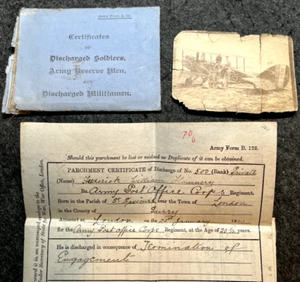 Army Form B.
Certificates
OF
Discharged Soldiers,
Army Reserve Men,
AND
Discharged Militiamen.
Army Form B. 128.
Should this parchment be lost or mislaid no Duplicate of it can be obtained.
PARCHMENT CERTIFICATE of Discharge of No. 802 (Rank) Private
(Name) Frederick William
Army Post Office Corps Regiment,
Born in the Parish of near the Town of London
in the County of Surrey
Attested at London on February
for the Army Post Office Corps Regiment, at the Age of 20
He is discharged in consequence of Termination of
Engagement